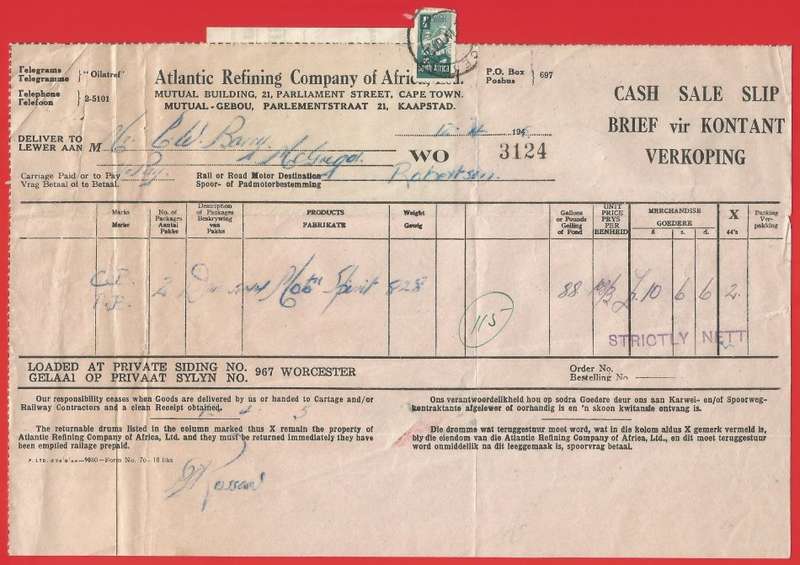 Telegrams
Telegramme } "Oilatref"
Telephone
Telefoon } 2-5101
Atlantic Refining Company of Africa, Ltd.
MUTUAL BUILDING, 21, PARLIAMENT STREET, CAPE TOWN.
MUTUAL-GEBOU, PARLEMENTSTRAAT 21, KAAPSTAD.
P.O. Box
Posbus } 697
SOUTH AFRICA
CASH SALE SLIP
BRIEF vir KONTANT
VERKOPING
DELIVER TO
LEWER AAN M
C W Barry
McGregor
194
WO 3124
Carriage Paid or to Pay
Vrag Betaal of te Betaal.
Pay
Rail or Road Motor Destination
Spoor- of Padmotorbestemming
Robertson
Marks
Merke
No. of Packages
Aantal Pakke
Description of Packages
Beskrywing van Pakke
PRODUCTS
FABRIKATE
Weight
Gewig
Gallons or Pounds
Gelling of Pond
UNIT PRICE
PRYS PER EENHEID
MERCHANDISE
GOEDERE
£ s. d.
X
44's
Packing
Ver-pakking
2 Drums Motor Spirit 828 88 £10 6 6 2
115
STRICTLY NETT
LOADED AT PRIVATE SIDING NO.
GELAAI OP PRIVAAT SYLYN NO. 967 WORCESTER
Order No.
Bestelling No
Our responsibility ceases when Goods are delivered by us or handed to Cartage and/or
Railway Contractors and a clean Receipt obtained.
Ons verantwoordelikheid hou op sodra Goedere deur ons aan Karwei- en/of Spoorweg-
kontraktante afgelewer of oorhandig is en 'n skoon kwitansie ontvang is.
The returnable drums listed in the column marked thus X remain the property of
Atlantic Refining Company of Africa, Ltd. and they must be returned immediately they have
been emptied railage prepaid.
Die dromme wat teruggestuur moet word, wat in die kolom aldus X gemerk vermeld is,
bly die eiendom van die Atlantic Refining Company of Africa, Ltd., en dit moet teruggestuur
word onmiddellik na dit leeggemaak is, spoorvrag betaal.
9880—Form No. 70